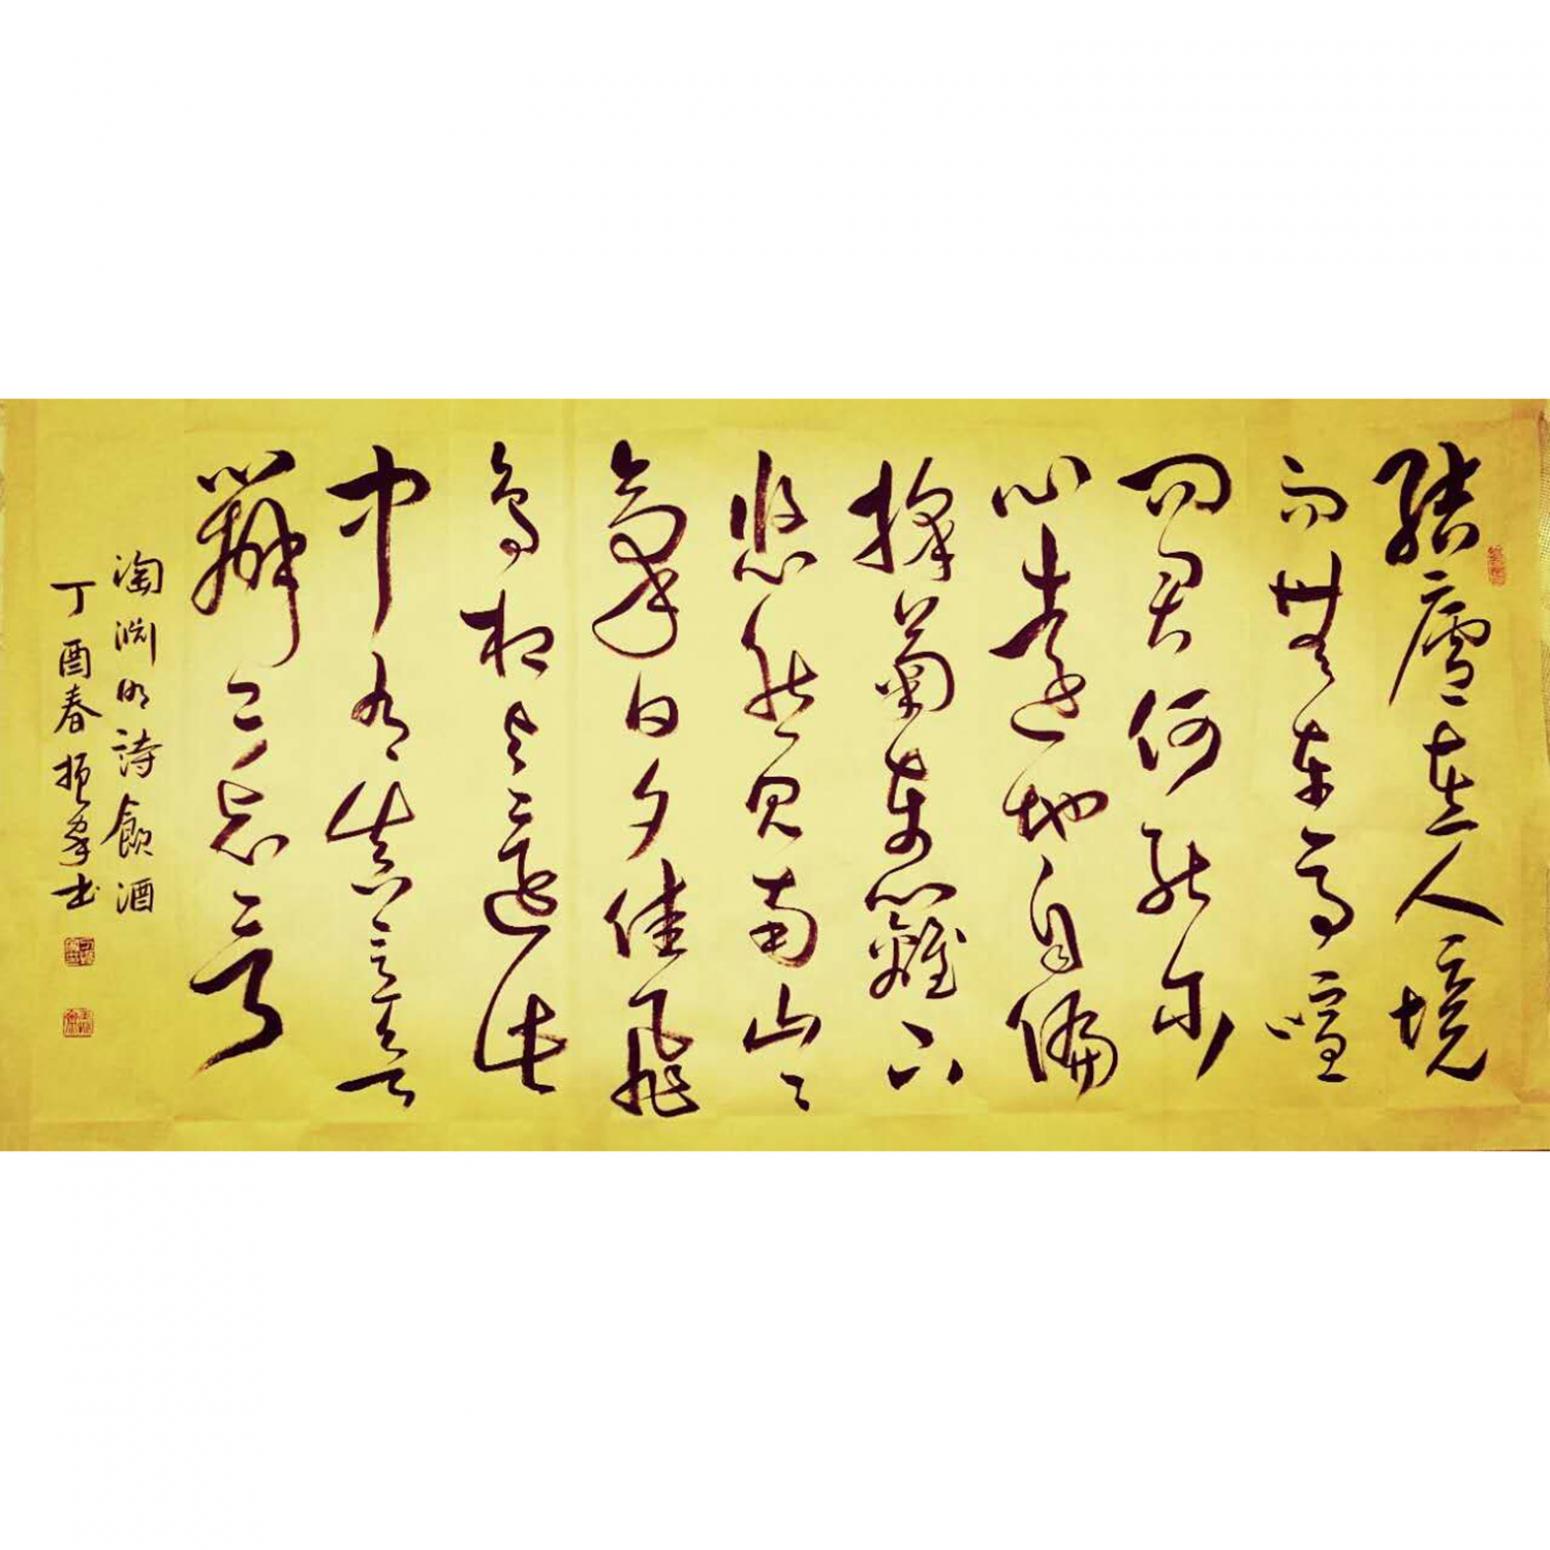 結廬在人境
而無車馬喧
問君何能尔
心遠地自偏
採菊東籬下
悠然見南山々
氣日夕佳飛
鳥相与還此
中有真意欲
辯已忘言
淘渊明詩飲酒
丁酉春振书